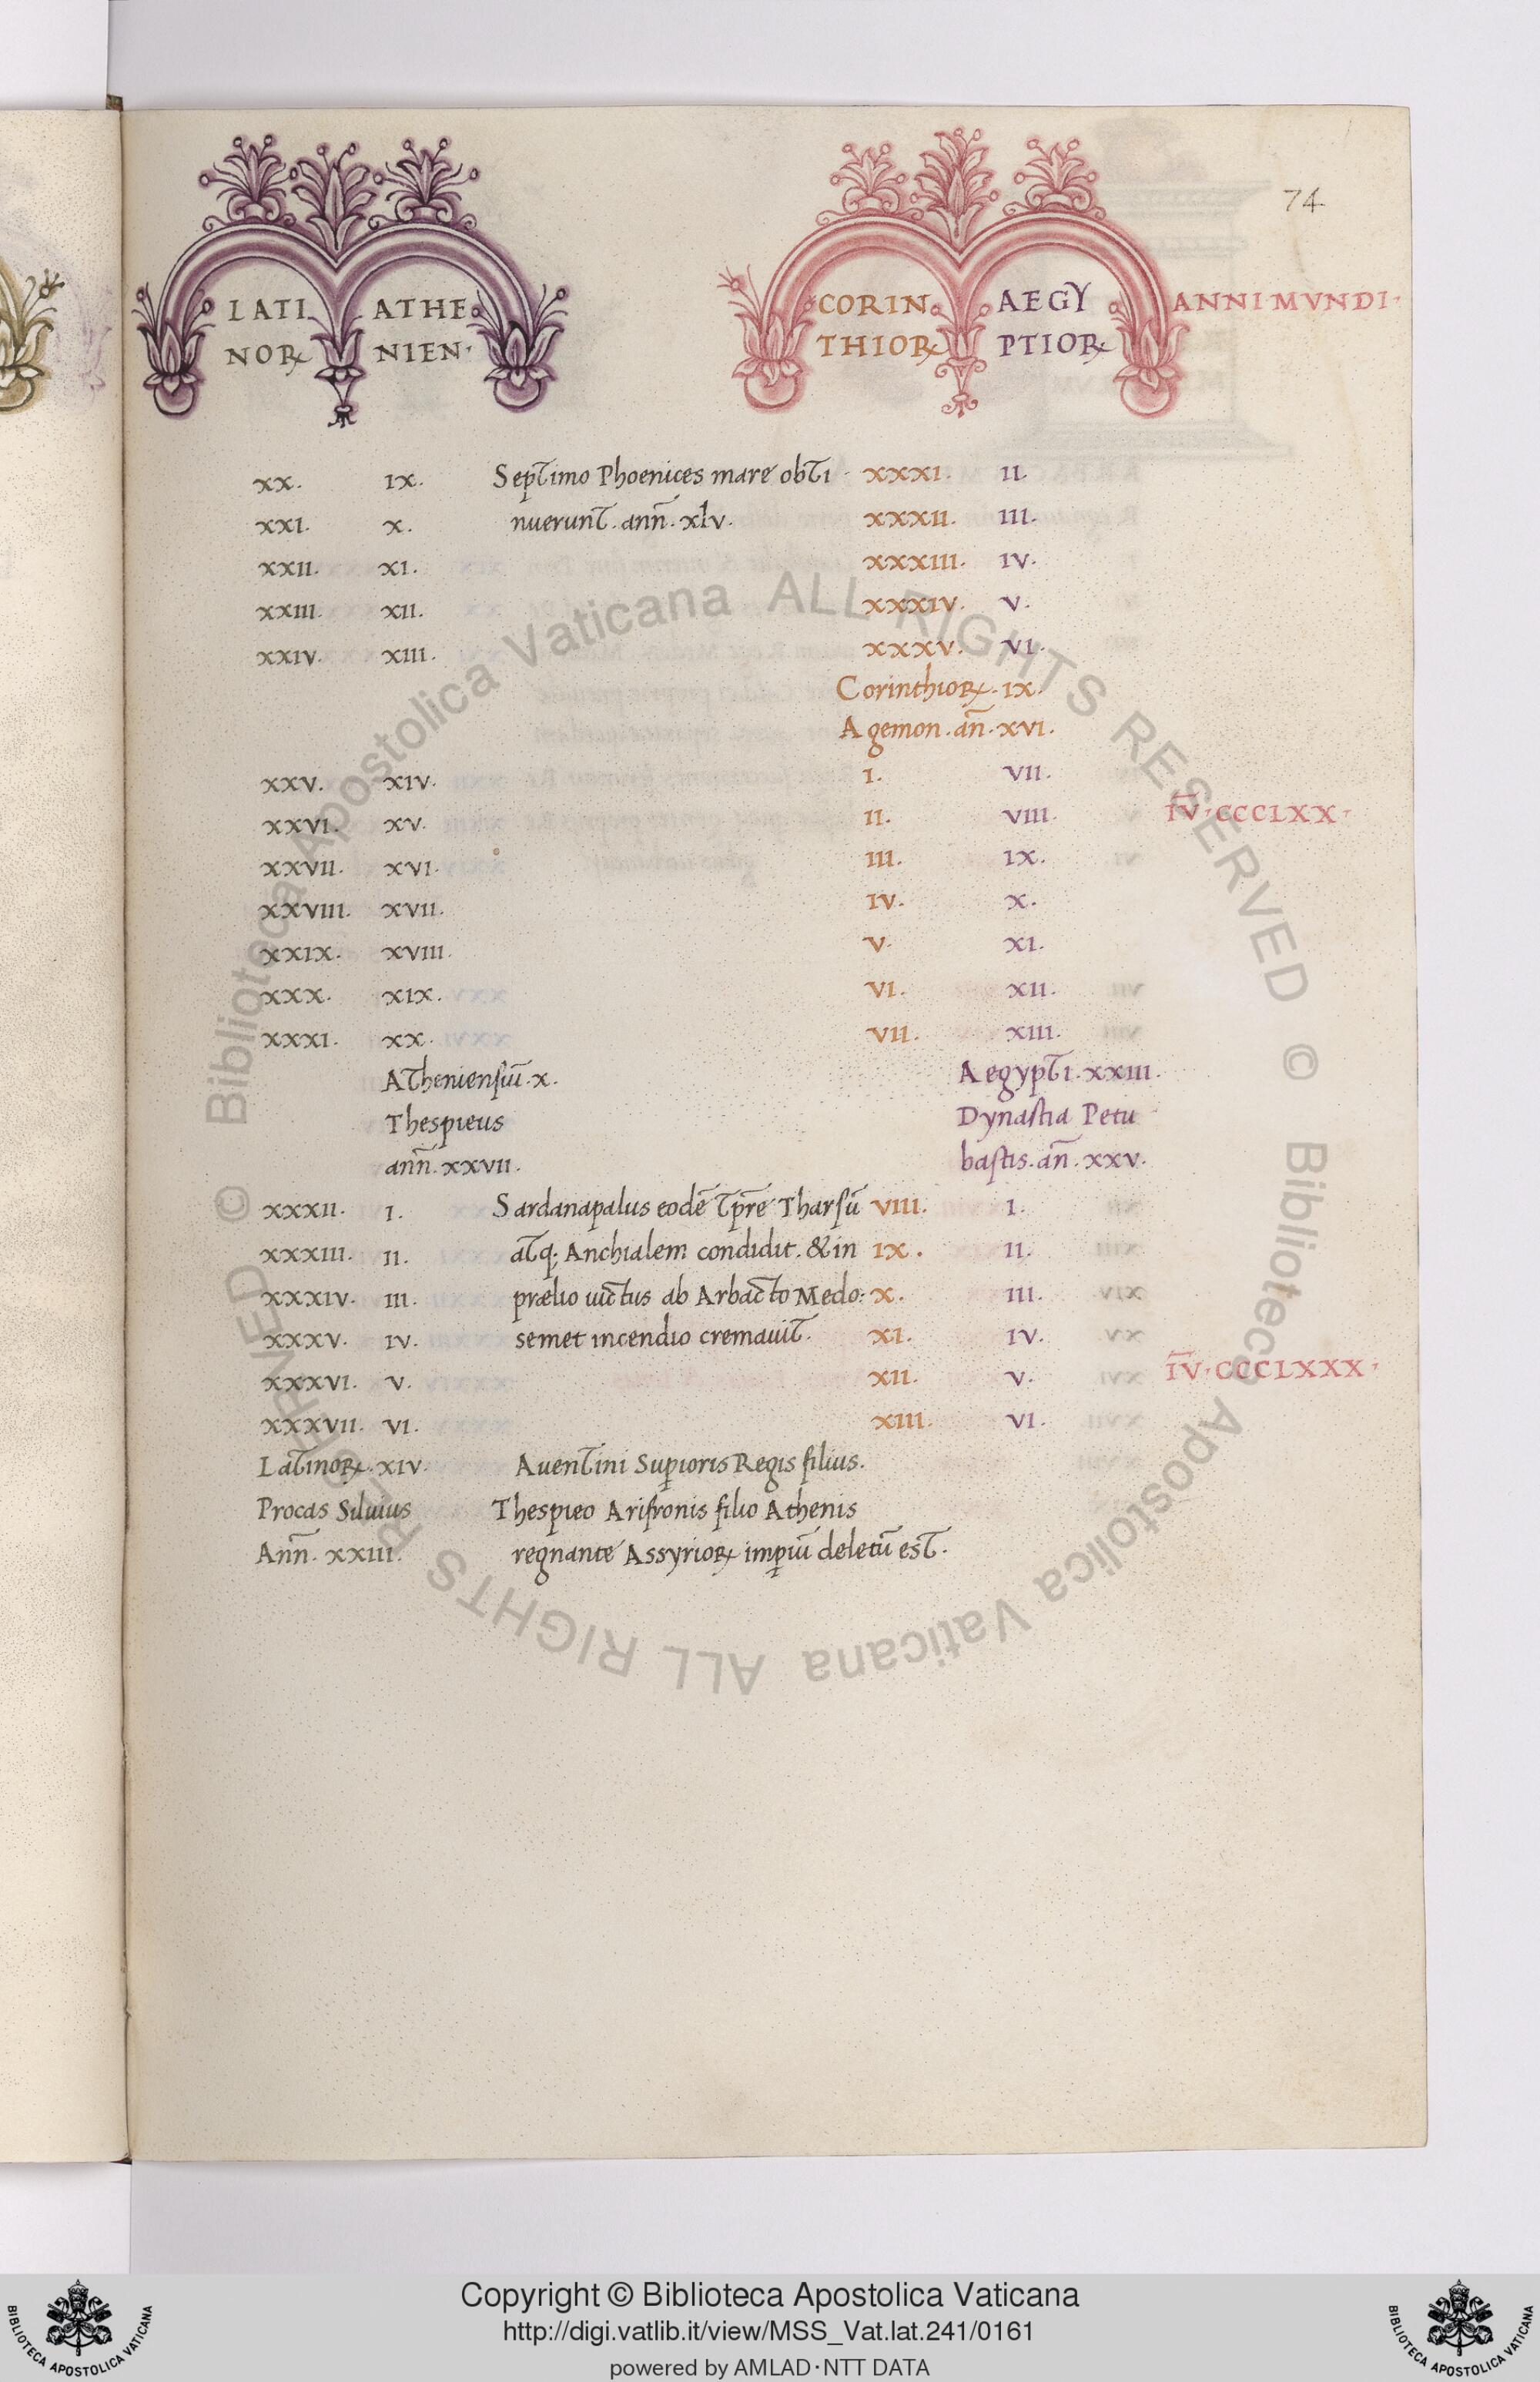 74
LATI ATHE CORIN AEGY ANNI MVNDI·
NOꝜ NIEN· THIOꝜ PTIOꝜ
xx. ix. Septimo Phoenices mare obti xxxi. ii.
xxi. x. nuerunt. ann̄. xlv. xxxii. iii.
xxii. xi. xxxiii. iv.
xxiii. xii. xxxiv. v.
xxiv. xiii. xxxv. vi.
CorinthioꝜ. ix.
Agemon. an̄. xvi.
xxv. xiv. i. vii.
xxvi. xv. ii. viii. I̅V̅·CCCLXX·
xxvii. xvi. iii. ix.
xxviii. xvii. iv. x.
xxix. xviii. v. xi.
xxx. xix. vi. xii.
xxxi. xx. vii. xiii.
Atheniensiū. x. Aegypti. xxiii.
Thespieus Dynastia Petu
ann̄. xxvii. bastis. an̄. xxv.
xxxii. i. Sardanapalus eodē tp̄re Tharsū viii. i.
xxxiii. ii. atq; Anchialem condidit. & in ix. ii.
xxxiv. iii. prælio uictus ab Arbacto Medo: x. iii.
xxxv. iv. semet incendio cremauit. xi. iv.
xxxvi. v. xii. v. I̅V̅·CCCLXXX·
xxxvii. vi. xiii. vi.
LatinoꝜ. xiv. Auentini Suꝑioris Regis filius.
Procas Siluius Thespieo Arifronis filio Athenis
Ann̄. xxiii. regnante AssyrioꝜ imꝑiū deletū est.
© Biblioteca Apostolica Vaticana ALL RIGHTS RESERVED
© Biblioteca Apostolica Vaticana ALL RIGHTS RESERVED
Copyright © Biblioteca Apostolica Vaticana
http://digi.vatlib.it/view/MSS_Vat.lat.241/0161
powered by AMLAD·NTT DATA
BIBLIOTECA APOSTOLICA VATICANA
BIBLIOTECA APOSTOLICA VATICANA